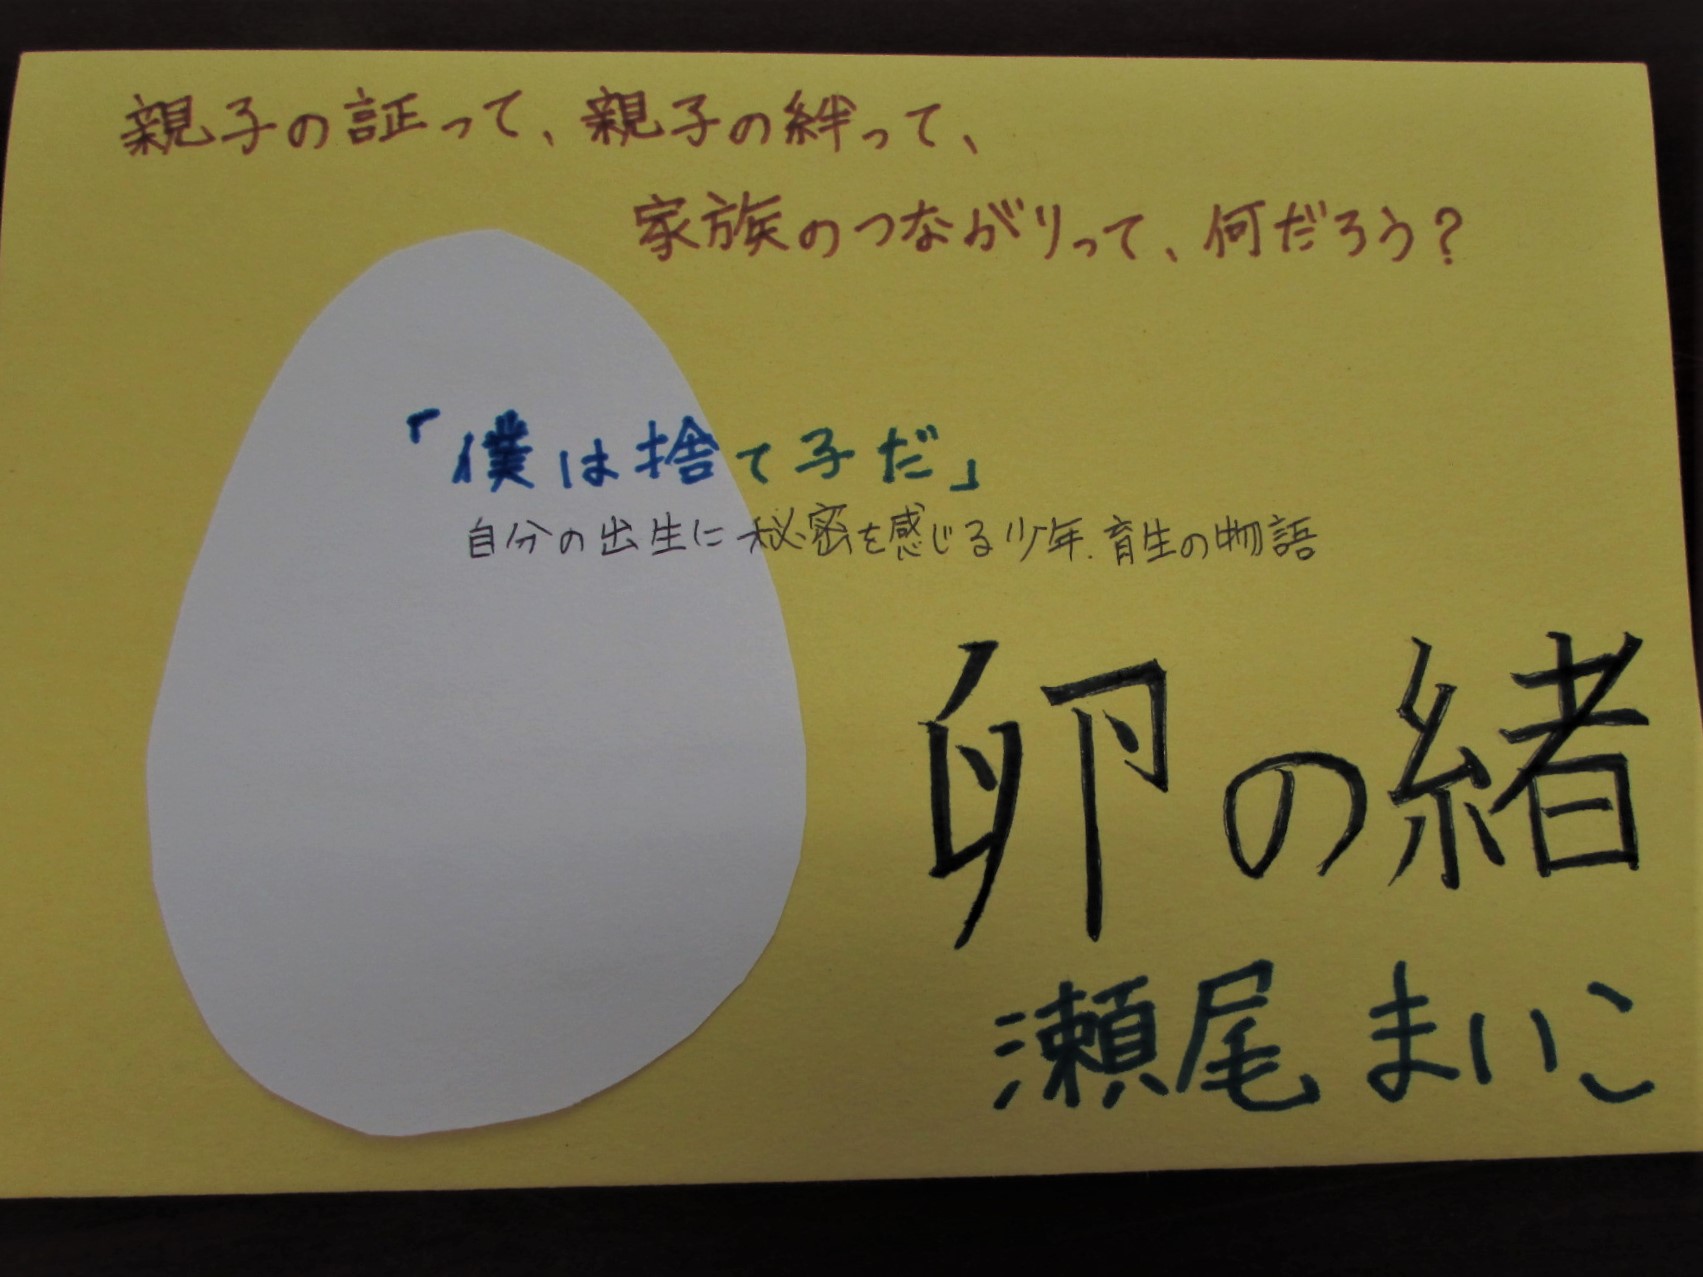 親子の証って、親子の絆って、
家族のつながりって、何だろう？
「僕は捨て子だ」
自分の出生に秘密を感じる少年、育生の物語
卵の緒
瀬尾まいこ